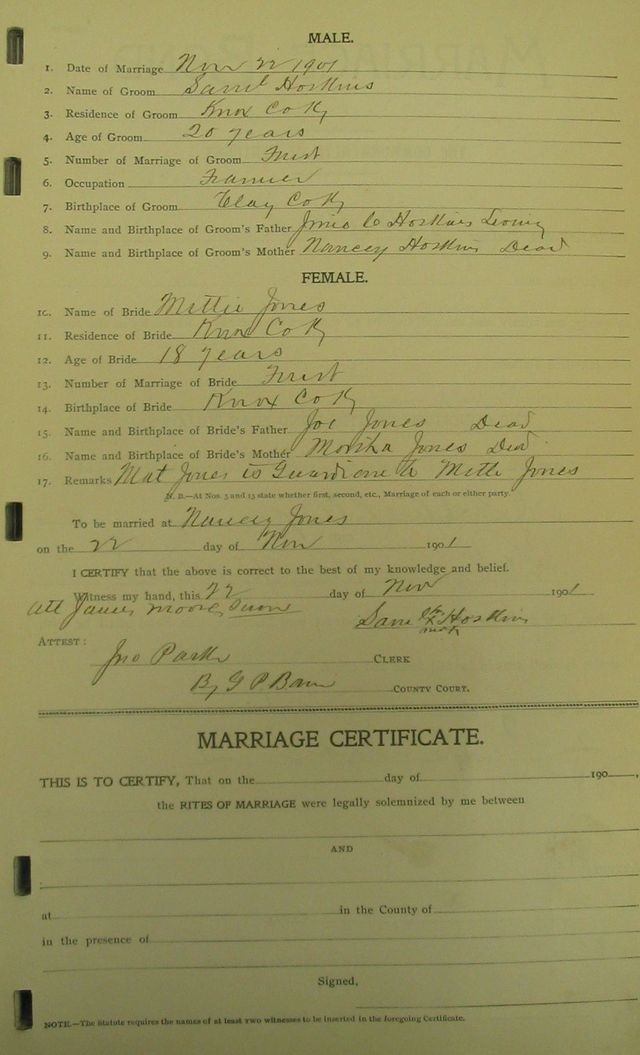 MALE.
1. Date of Marriage Nov 22 1901
2. Name of Groom Saml Hoskins
3. Residence of Groom Knox Co Ky
4. Age of Groom 20 years
5. Number of Marriage of Groom First
6. Occupation Framer
7. Birthplace of Groom Clay Co Ky
8. Name and Birthplace of Groom's Father C Hoskins
9. Name and Birthplace of Groom's Mother Nancey Hoskins Dead
FEMALE.
10. Name of Bride Mettie Jones
11. Residence of Bride Knox Co Ky
12. Age of Bride 18 years
13. Number of Marriage of Bride First
14. Birthplace of Bride Knox Co Ky
15. Name and Birthplace of Bride's Father Joe Jones Dead
16. Name and Birthplace of Bride's Mother Jones Dead
17. Remarks Mat Jones is Guardione to Jones
N. B.—At Nos. 5 and 13 state whether first, second, etc., Marriage of each or either party
To be married at Nancey Jones
on the 22 day of Nov 1901
I CERTIFY that the above is correct to the best of my knowledge and belief.
Witness my hand, this 22 day of Nov 1901
Att James Moore
Saml X Hoskins
mark
ATTEST:
Jno Parker CLERK
By G P Bain COUNTY COURT.
MARRIAGE CERTIFICATE.
THIS IS TO CERTIFY, That on the day of 190 ,
the RITES OF MARRIAGE were legally solemnized by me between
AND
at in the County of
in the presence of
Signed,
NOTE.—The Statute requires the names of at least two witnesses to be inserted in the foregoing Certificate.